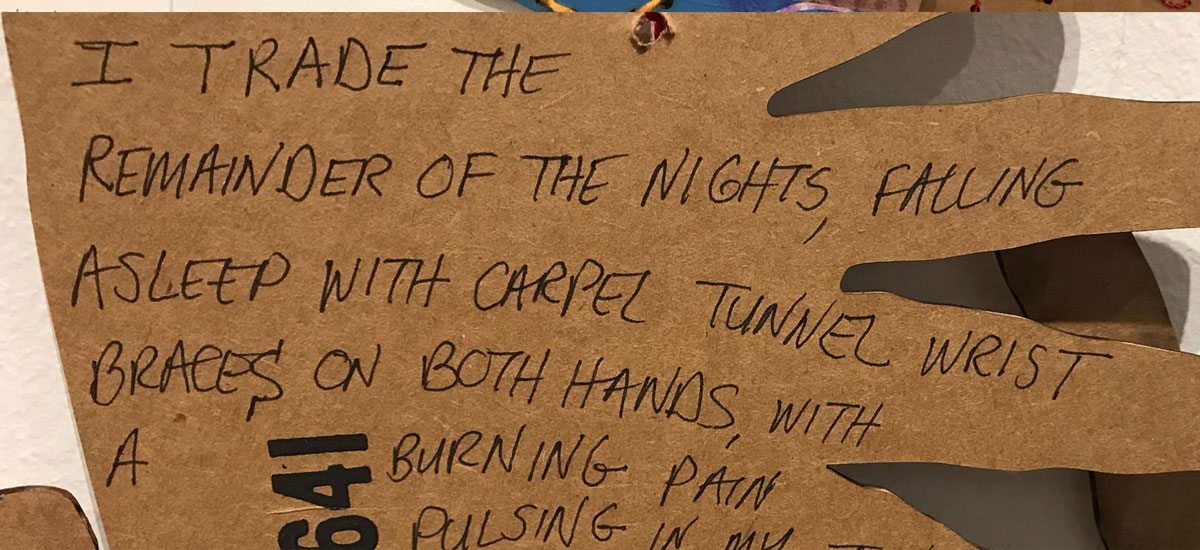 I TRADE THE
REMAINDER OF THE NIGHTS, FALLING
ASLEEP WITH CARPEL TUNNEL WRIST
BRACES ON BOTH HANDS, WITH
A BURNING PAIN
PULSING IN MY
641